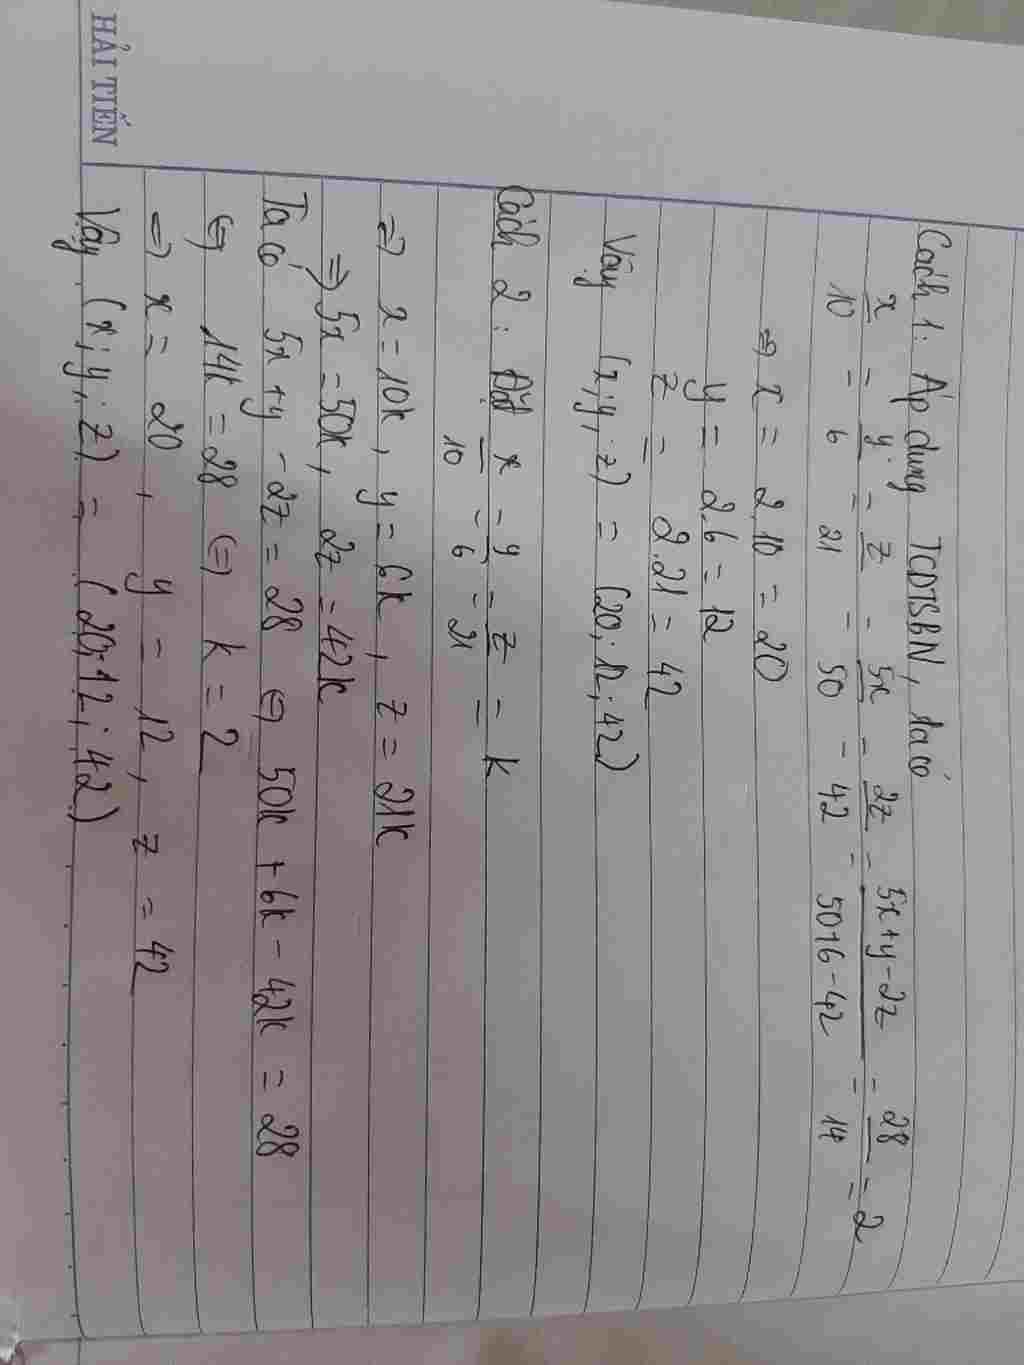 HẢI TIẾN
Cách 1: Áp dụng TCDTSBN, ta có
x/10 = y/6 = z/21 = 5x/50 = 2z/42 = 5x+y-2z/50+6-42 = 28/14 = 2
=> x = 2.10 = 20
y = 2.6 = 12
z = 2.21 = 42
Vậy (x;y;z) = (20;12;42)
Cách 2: Đặt x/10 = y/6 = z/21 = k
=> x = 10k, y = 6k, z = 21k
=> 5x = 50k, 2z = 42k
Ta có 5x + y - 2z = 28 <=> 50k + 6k - 42k = 28
<=> 14k = 28 <=> k = 2
=> x = 20, y = 12, z = 42
Vậy (x;y;z) = (20;12;42)